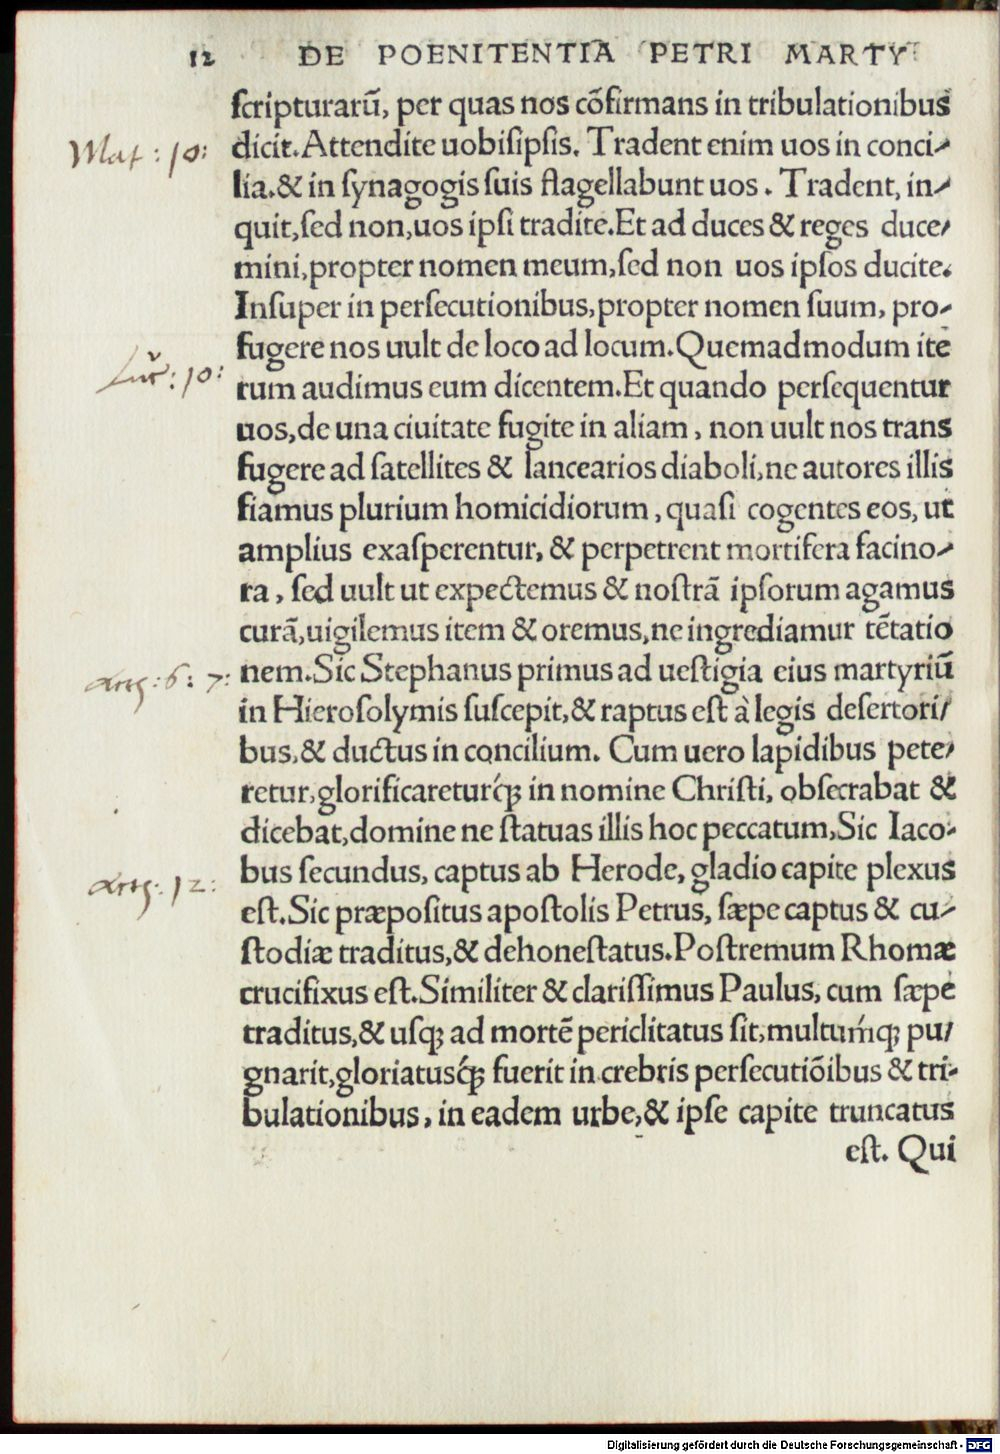 12 DE POENITENTIA PETRI MARTY
ſcripturarū, per quas nos cōfirmans in tribulationibus
Mat: 10: dicit. Attendite uobiſipſis. Tradent enim uos in conci-
lia.& in ſynagogis ſuis flagellabunt uos. Tradent, in-
quit, ſed non, uos ipſi tradite. Et ad duces & reges duce/
mini, propter nomen meum, ſed non uos ipſos ducite.
Inſuper in perſecutionibus, propter nomen ſuum, pro-
fugere nos uult de loco ad locum. Quemadmodum ite
Luc: 10: rum audimus eum dicentem. Et quando perſequentur
uos, de una ciuitate fugite in aliam, non uult nos trans
fugere ad ſatellites & lancearios diaboli, ne autores illis
fiamus plurium homicidiorum, quaſi cogentes eos, ut
amplius exaſperentur, & perpetrent mortifera facino-
ra, ſed uult ut expectemus & noſtrā ipſorum agamus
curā, uigilemus item & oremus, ne ingrediamur tētatio
Acts: 6: 7: nem. Sic Stephanus primus ad ueſtigia eius martyriū
in Hieroſolymis ſuſcepit, & raptus eſt à legis deſertori/
bus, & ductus in concilium. Cum uero lapidibus pete/
retur, glorificareturq́; in nomine Chriſti, obſecrabat &
dicebat, domine ne ſtatuas illis hoc peccatum, Sic Iaco-
Acts: 12: bus ſecundus, captus ab Herode, gladio capite plexus
eſt. Sic præpoſitus apoſtolis Petrus, ſæpe captus & cu-
ſtodiæ traditus, & dehoneſtatus. Poſtremum Rhomæ
crucifixus eſt. Similiter & clariſſimus Paulus, cum ſæpe
traditus, & uſq; ad mortē periclitatus ſit, multumq́; pu/
gnarit, gloriatusq́; fuerit in crebris perſecutiōibus & tri-
bulationibus, in eadem urbe, & ipſe capite truncatus
eſt. Qui
Digitalisierung gefördert durch die Deutsche Forschungsgemeinschaft - DFG